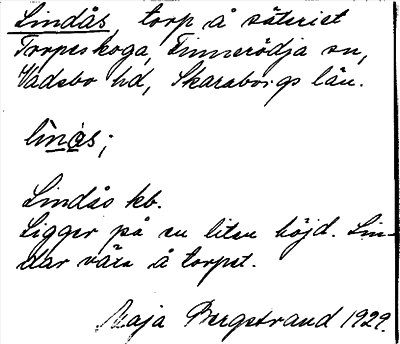 Lindås, torp å säteriet
Torpaskoga, Finnerödja sn,
Vadsbo hd, Skaraborgs län.
lìnás;
Lindås kb.
Ligger på en liten höjd. Lin-
dar växa å torpet.
Maja Bergstrand 1929.